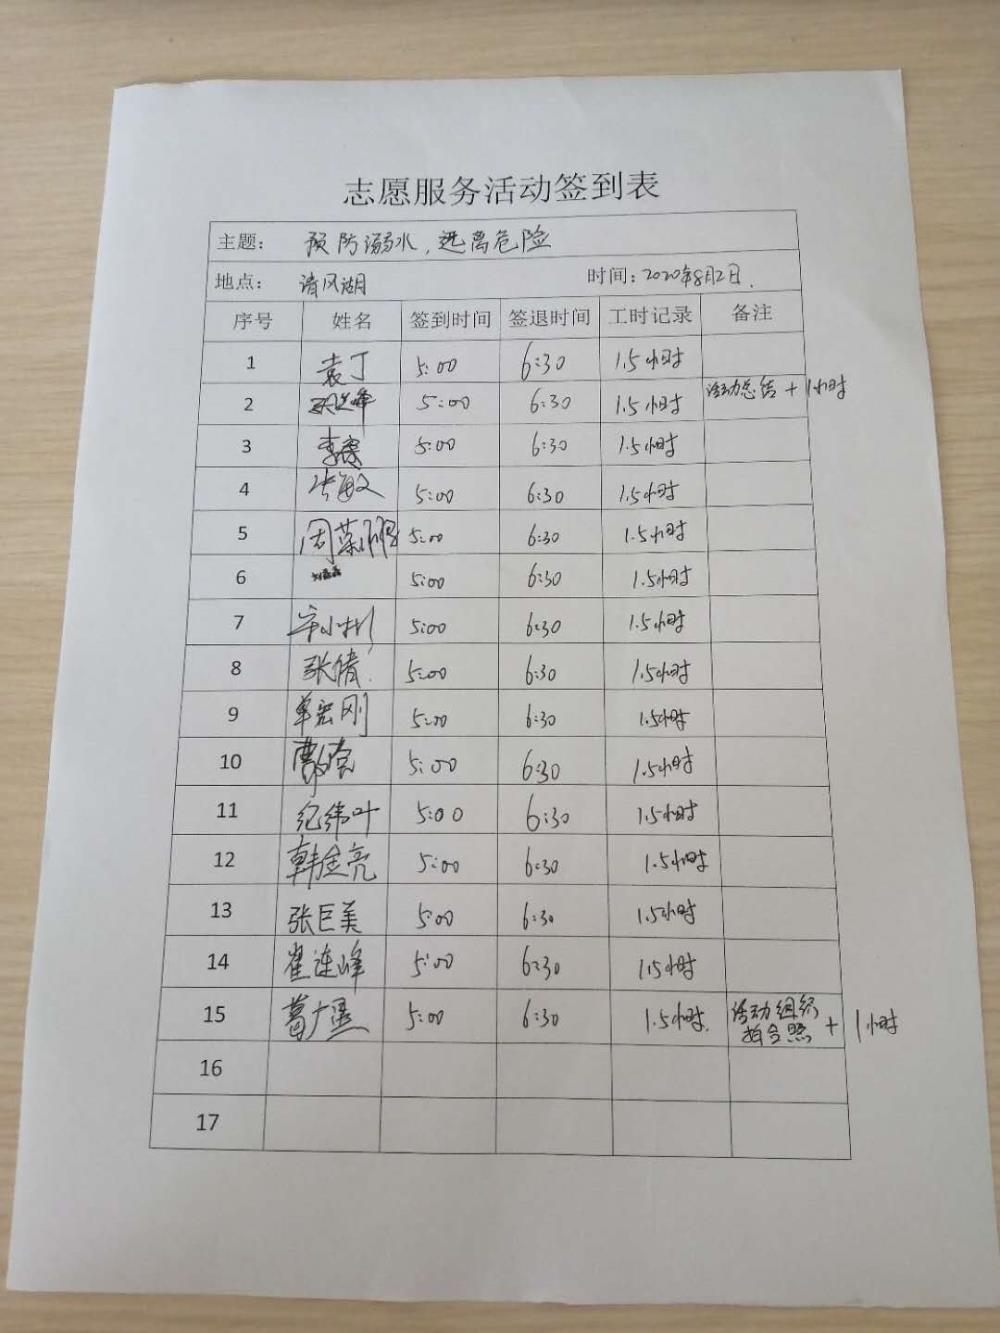 志愿服务活动签到表
主题： 预防溺水，远离危险
地点： 清风湖 时间：2020年8月2日.
序号 姓名 签到时间 签退时间 工时记录 备注
1 袁丁 5:00 6:30 1.5小时
2 5:00 6:30 1.5小时 活动总结 + 1小时
3 5:00 6:30 1.5小时
4 张敏 5:00 6:30 1.5小时
5 5:00 6:30 1.5小时
6 5:00 6:30 1.5小时
7 5:00 6:30 1.5小时
8 张倩 5:00 6:30 1.5小时
9 单宏刚 5:00 6:30 1.5小时
10 5:00 6:30 1.5小时
11 纪纬叶 5:00 6:30 1.5小时
12 韩金亮 5:00 6:30 1.5小时
13 张巨美 5:00 6:30 1.5小时
14 崔连峰 5:00 6:30 1.5小时
15 葛广 5:00 6:30 1.5小时. 活动组织
拍合照 + 1小时
16
17